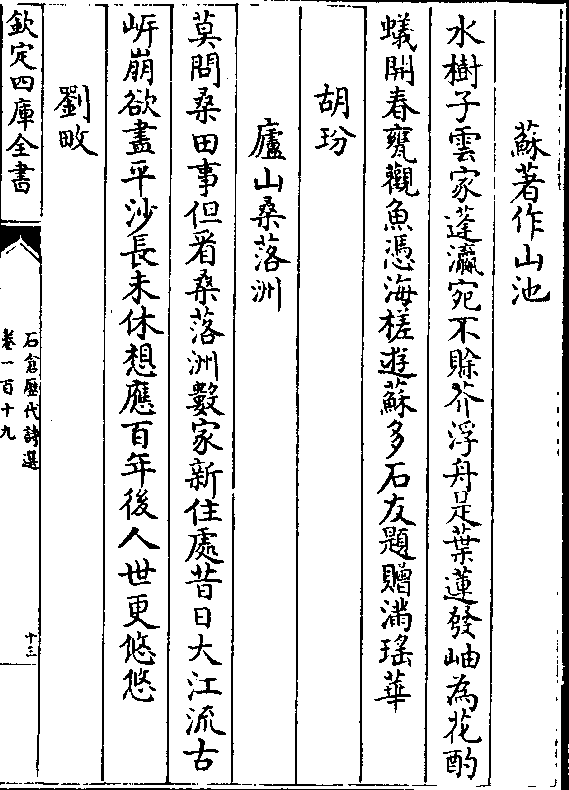 蘇著作山池
水樹子雲家蓬瀛宛不賖芥浮舟是葉蓮發岫為花酌
蟻開春甕觀魚憑海槎遊蘇多石友題贈滿瑤華
胡玢
廬山桑落洲
莫問桑田事但看桑落洲數家新住處昔日大江流古
岍崩欲盡平沙長未休想應百年後人世更悠悠
劉畋
欽定四庫全書
石倉歷代詩選
卷一百十九
十三